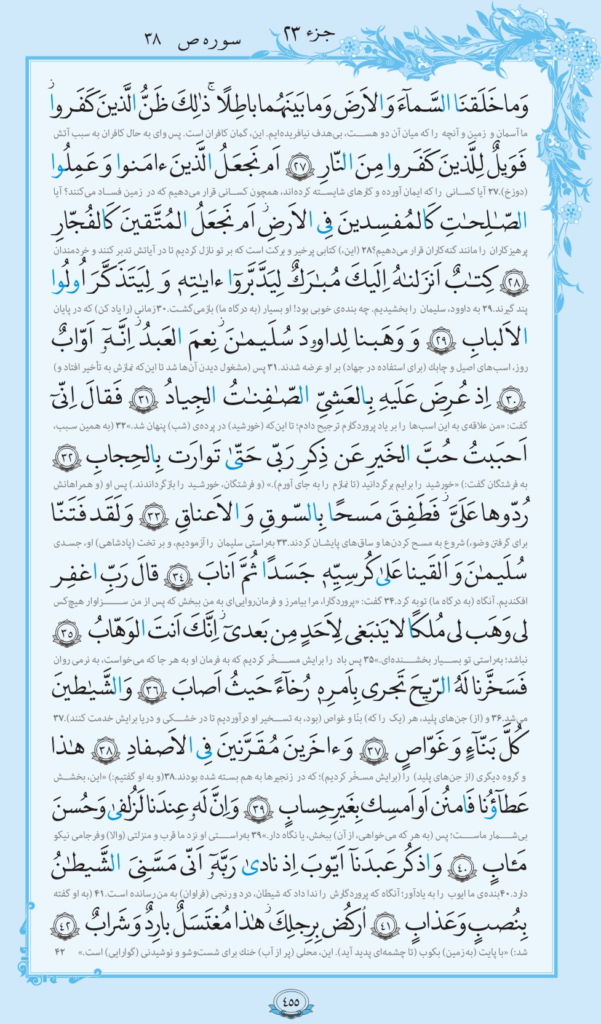 جزء ۲۳
سوره ص ۳۸
وَما خَلَقنَا السَّماءَ وَ الاَرضَ وَ ما بَينَهُما باطِلًا ۚ ذٰلِكَ ظَنُّ الَّذينَ كَفَروا ۚ
ما آسمان و زمین و آنچه را که میان آن دو هست، بی‌هدف نیافریده‌ایم. این، گمان کافران است. پس وای به حال کافران به سبب آتش
فَوَيلٌ لِلَّذينَ كَفَروا مِنَ النّارِ ﴿۲۷﴾ اَم نَجعَلُ الَّذينَ ءامَنوا وَ عَمِلُوا
(دوزخ).۲۷ آیا کسانی را که ایمان آورده و کارهای شایسته کرده‌اند، همچون کسانی قرار می‌دهیم که در زمین فساد می‌کنند؟ آیا
الصّـٰلِحـٰتِ كَالمُفسِدينَ فِى الاَرضِ اَم نَجعَلُ المُتَّقينَ كَالفُجّارِ
پرهیزکاران را مانند گنه‌کاران قرار می‌دهیم؟۲۸ (این،) کتابی پرخیر و برکت است که بر تو نازل کردیم تا در آیاتش تدبر کنند و خردمندان
﴿۲۸﴾ كِتـٰبٌ اَنزَلنـٰهُ اِلَيكَ مُبـٰرَكٌ لِيَدَّبَّروا ءايـٰتِهٖ وَ لِيَتَذَكَّرَ اُولُوا
پند گیرند.۲۹ به داوود، سلیمان را بخشیدیم. چه بنده‌ی خوبی بود! او بسیار (به درگاه ما) بازمی‌گشت.۳۰ زمانی (را یاد کن) که در پایان
الاَلبابِ ﴿۲۹﴾ وَ وَهَبنا لِداوودَ سُلَيمـٰنَ ۚ نِعمَ العَبدُ ۖ اِنَّهٗٓ اَوّابٌ
روز، اسب‌های اصیل و چابك (برای استفاده در جهاد) بر او عرضه شدند.۳۱ پس (مشغول دیدن آن‌ها شد تا این‌که نمازش به تأخیر افتاد و)
﴿۳۰﴾ اِذ عُرِضَ عَلَيهِ بِالعَشِىِّ الصّـٰفِنـٰتُ الجِيادُ ﴿۳۱﴾ فَقالَ اِنّىٓ
گفت: «من علاقه‌ی به این اسب‌ها را بر یاد پروردگارم ترجیح دادم؛ تا این‌که (خورشید) در پرده‌ی (شب) پنهان شد.»۳۲ (به همین سبب،
اَحبَبتُ حُبَّ الخَيرِ عَن ذِكرِ رَبّى حَتّىٰ تَوارَت بِالحِجابِ ﴿۳۲﴾
به فرشتگان گفت:) «خورشید را برایم برگردانید (تا نمازم را به جای آورم).» (و فرشتگان، خورشید را بازگرداندند.) پس او (و همراهانش
رُدّوها عَلَىَّ ۖ فَطَفِقَ مَسحًا بِالسّوقِ وَ الاَعناقِ ﴿۳۳﴾ وَ لَقَد فَتَنّا
برای گرفتن وضو،) شروع به مسح کردن‌ها و ساق‌های پایشان کردند.۳۳ به‌راستی سلیمان را آزمودیم، و بر تخت (پادشاهی) او، جسدی
سُلَيمـٰنَ وَ اَلقَينا عَلىٰ كُرسِيِّهٖ جَسَدًا ثُمَّ اَنابَ ﴿۳۴﴾ قالَ رَبِّ اغفِر
افکندیم. آنگاه (به درگاه ما) توبه کرد.۳۴ گفت: «پروردگارا، مرا بیامرز و فرمان‌روایی‌ای به من ببخش که پس از من سزاوار هیچ‌کس
لى وَ هَب لى مُلكًا لا يَنبَغى لِاَحَدٍ مِن بَعدىٓ ۖ اِنَّكَ اَنتَ الوَهّابُ ﴿۳۵﴾
نباشد؛ به‌راستی تو بسیار بخشنده‌ای.»۳۵ پس باد را برایش مسخّر کردیم که به فرمان او به هر جا که می‌خواست، به نرمی روان
فَسَخَّرنا لَهُ الرّيحَ تَجرى بِاَمرِهٖ رُخاءً حَيثُ اَصابَ ﴿۳۶﴾ وَ الشَّيـٰطينَ
می‌شد.۳۶ و (از) جن‌های پلید، هر (یک را که) بنّا و غواص (بود، به تسخیر او درآوردیم تا در خشکی و دریا برایش خدمت کنند).۳۷
كُلَّ بَنّاءٍ وَ غَوّاصٍ ﴿۳۷﴾ وَ ءاخَرينَ مُقَرَّنينَ فِى الاَصفادِ ﴿۳۸﴾ هـٰذا
و گروه دیگری (از جن‌های پلید) را (برایش مسخّر کردیم)؛ که در زنجیرها به هم بسته شده بودند.۳۸(و به او گفتیم:) «این، بخشش
عَطاؤُنا فَامنُن اَو اَمسِك بِغَيرِ حِسابٍ ﴿۳۹﴾ وَ اِنَّ لَهٗ عِندَنا لَزُلفىٰ وَ حُسنَ
بی‌شمار ماست؛ پس (به هر که می‌خواهی، از آن) ببخش، یا نگاه دار.»۳۹ به‌راستی او نزد ما قرب و منزلتی (والا) و فرجامی نیکو
مَـٔابٍ ﴿۴۰﴾ وَ اذكُر عَبدَنا اَيّوبَ اِذ نادىٰ رَبَّهٗٓ اَنّى مَسَّنِىَ الشَّيطـٰنُ
دارد.۴۰ بنده‌ی ما ایوب را به یادآور؛ آنگاه که پروردگارش را ندا داد که شیطان، درد و رنجی (فراوان) به من رسانده است.۴۱ (به او گفته
بِنُصبٍ وَ عَذابٍ ﴿۴۱﴾ اُركُض بِرِجلِكَ ۖ هـٰذا مُغتَسَلٌ بارِدٌ وَ شَرابٌ ﴿۴۲﴾
شد:) «با پایت (به‌زمین) بکوب (تا چشمه‌ای پدید آید). این، محلی (پر از آب) خنك برای شست‌وشو و نوشیدنی (گوارایی) است.» ۴۲
۴۵۵